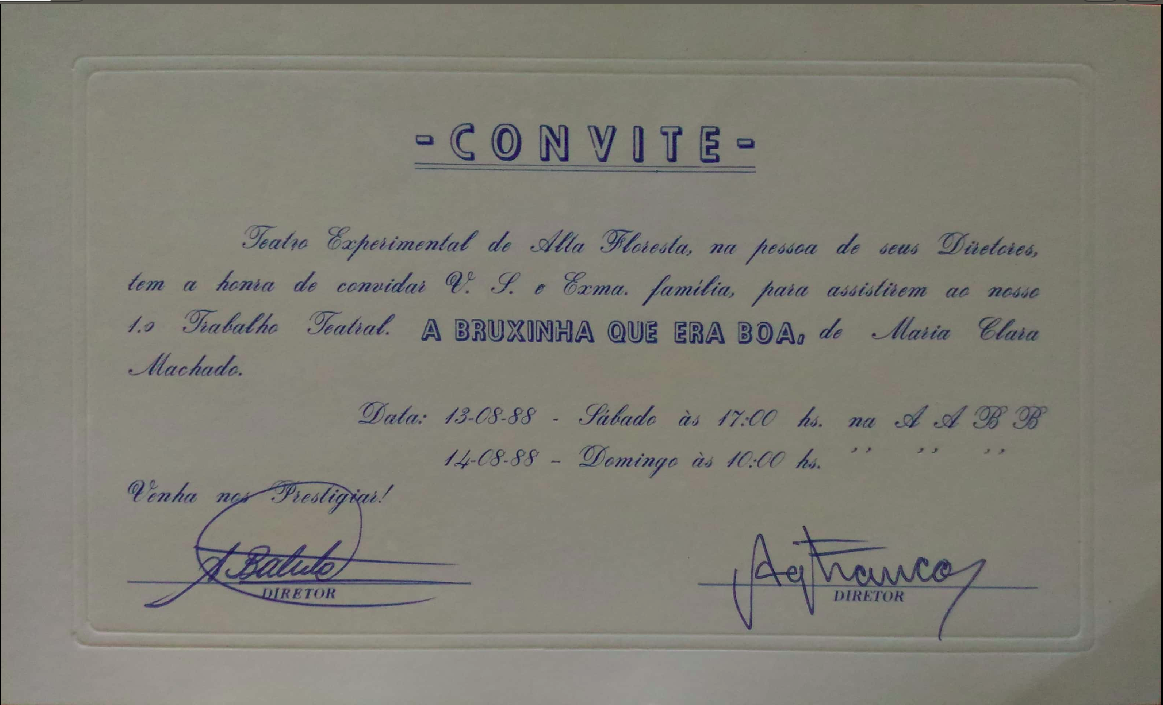 - CONVITE -
Teatro Experimental de Alta Floresta, na pessoa de seus Diretores,
tem a honra de convidar V. S. e Exma. família, para assistirem ao nosso
1.o Trabalho Teatral. A BRUXINHA QUE ERA BOA, de Maria Clara
Machado.
Data: 13-08-88 - Sábado às 17:00 hs. na A A B B
14-08-88 - Domingo às 10:00 hs. " " "
Venha nos Prestigiar!
DIRETOR
DIRETOR